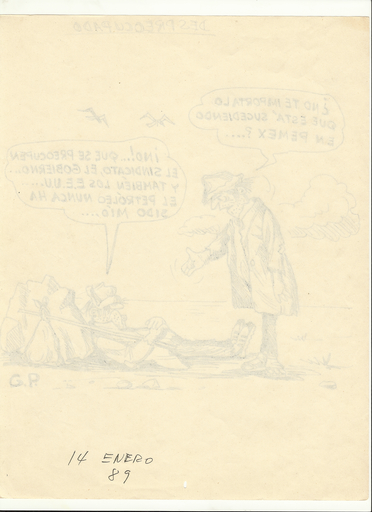 DESPREOCUPADO
¿NO TE IMPORTA LO
QUE ESTÁ SUCEDIENDO
EN PEMEX?...
¡NO!... QUE SE PREOCUPEN
EL SINDICATO, EL GOBIERNO...
Y TAMBIEN LOS E.E.U.U....
EL PETROLEO NUNCA HA
SIDO MIO....
14 ENERO
89